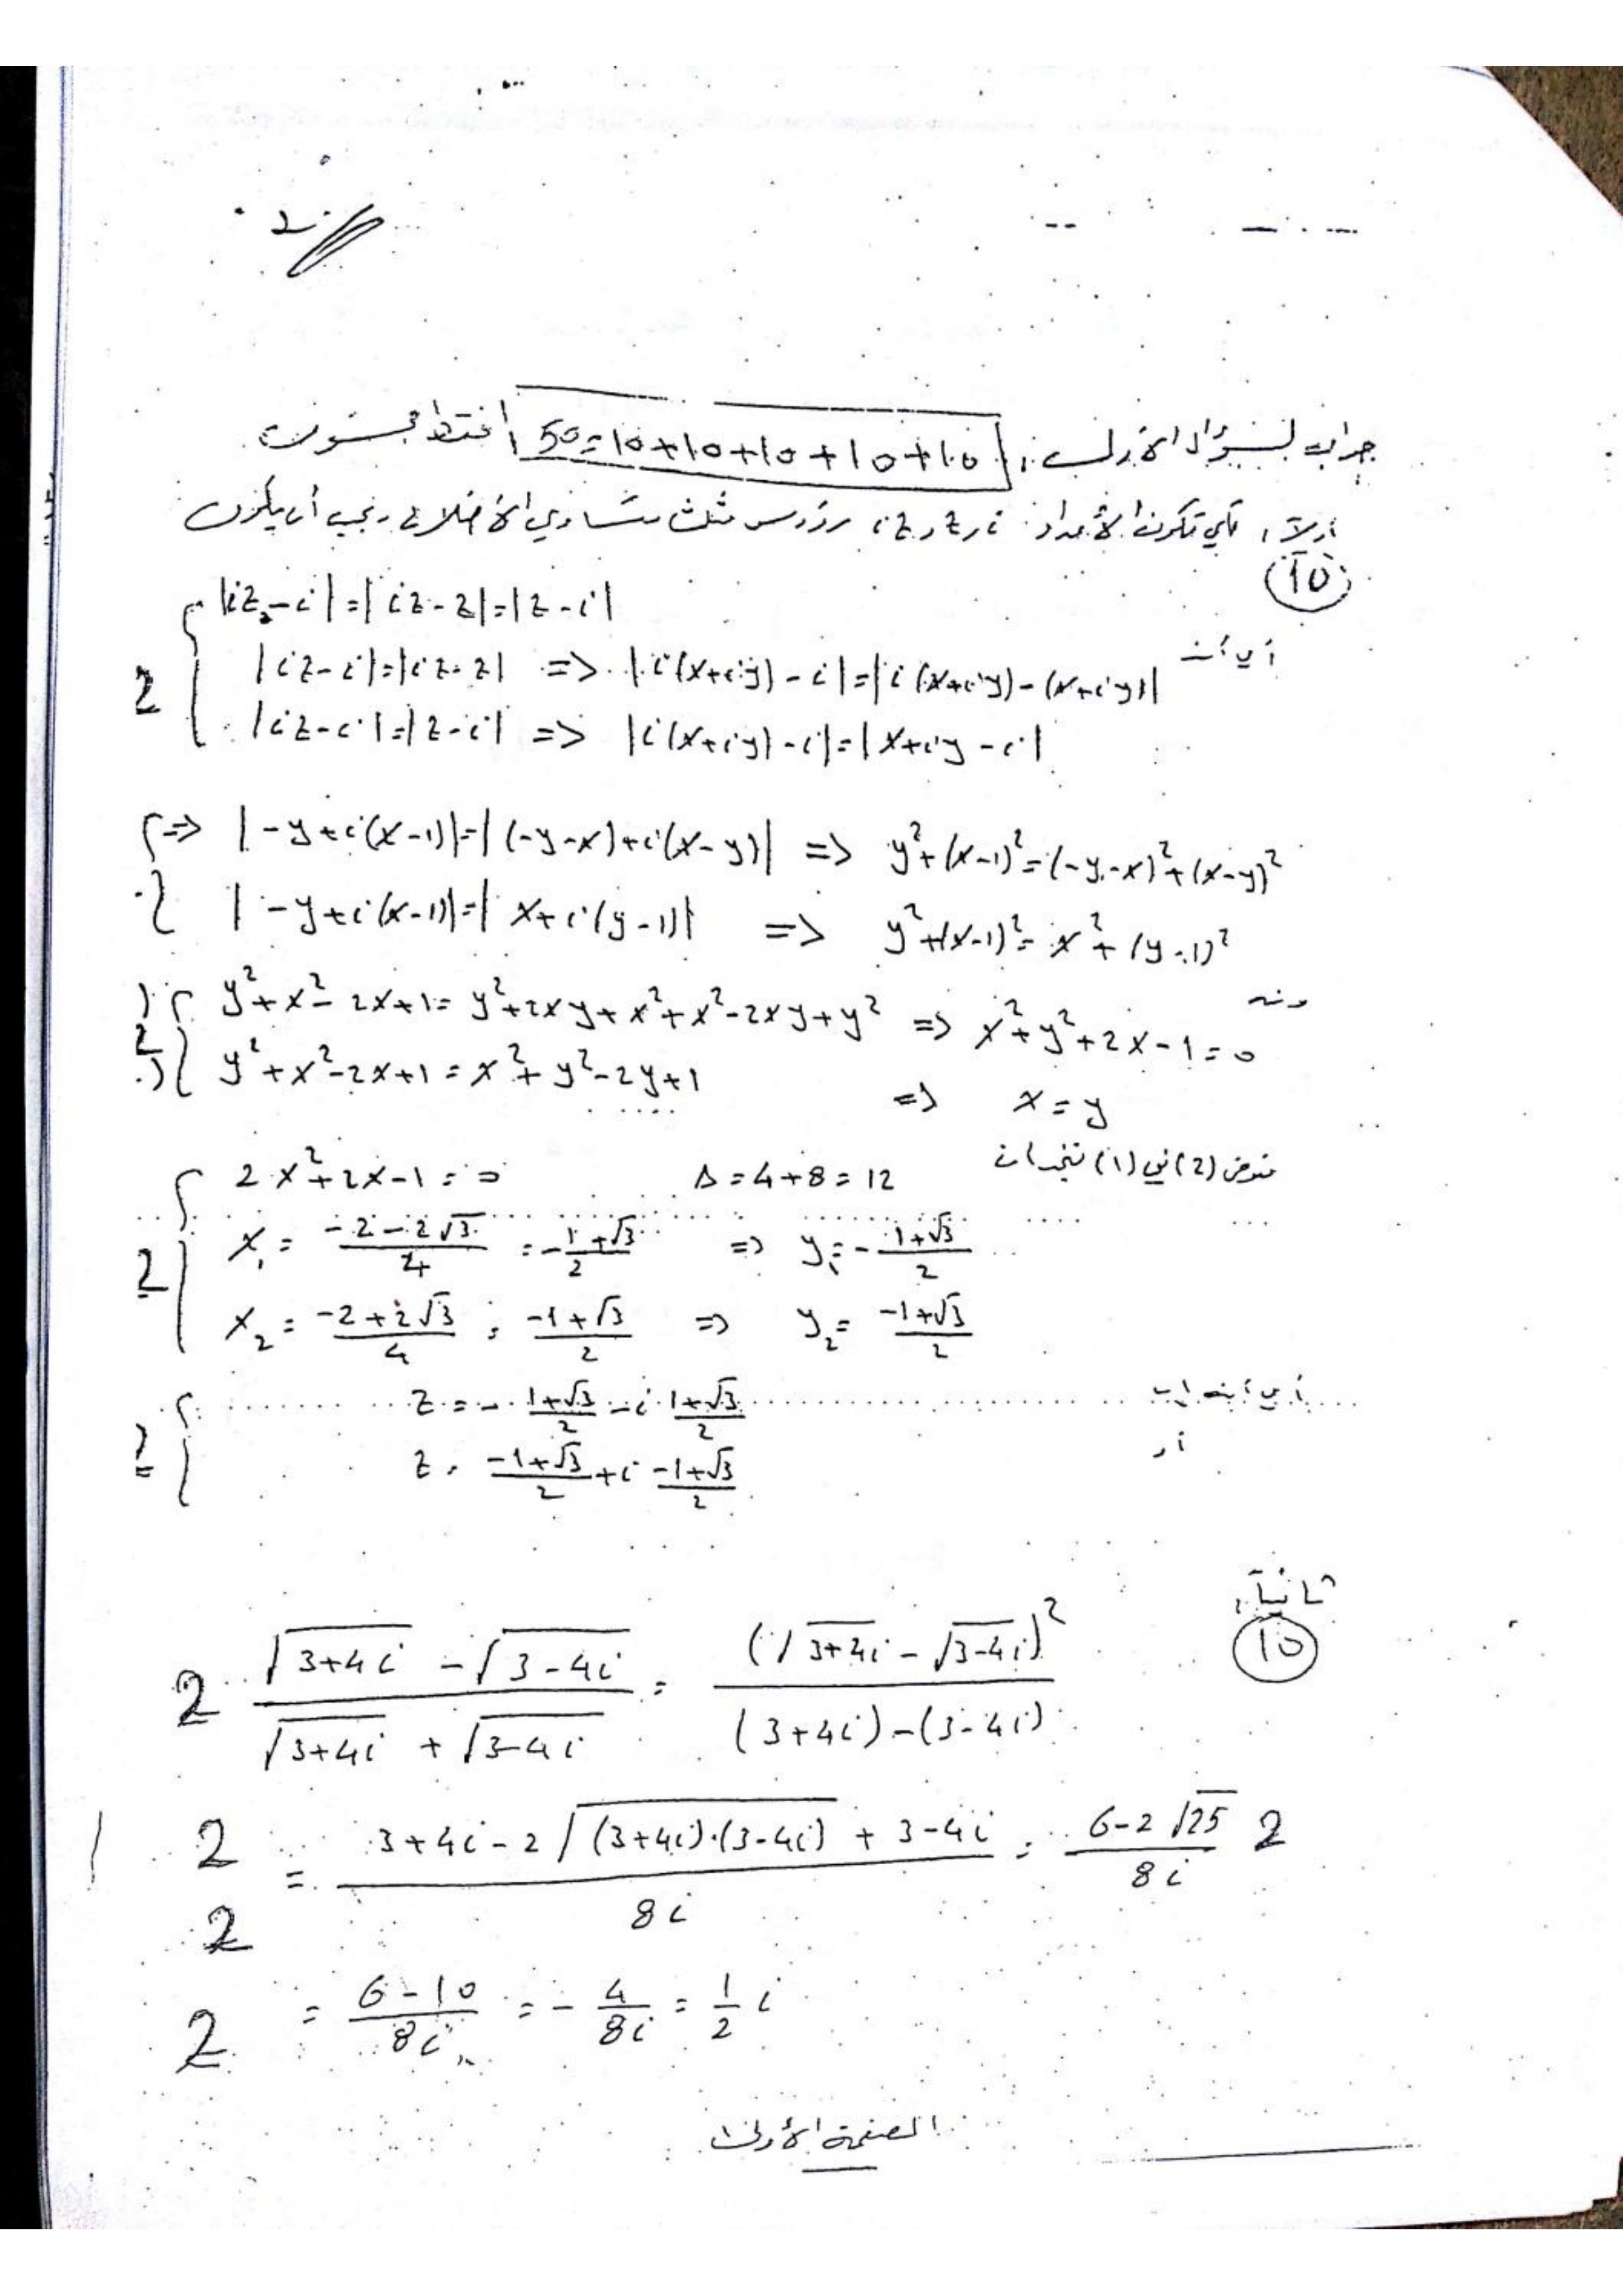 جواب السؤال الأول: 50=10+10+10+10+10 فقط خمسون
أولاً، لكي تكون الأعداد i, z, iz رؤوس مثلث متساوي الأضلاع، يجب أن يكون
10
|iz-i|=|iz-z|=|z-i|
أي أن
2 |iz-i|=|iz-z| => |i(x+iy)-i|=|i(x+iy)-(x+iy)|
|iz-i|=|z-i| => |i(x+iy)-i|=|x+iy-i|
=> |-y+i(x-1)|=|(-y-x)+i(x-y)| => y²+(x-1)²=(-y-x)²+(x-y)²
|-y+i(x-1)|=|x+i(y-1)| => y²+(x-1)²=x²+(y-1)²
ومنه
2 y²+x²-2x+1=y²+2xy+x²+x²-2xy+y² => x²+y²+2x-1=0
y²+x²-2x+1=x²+y²-2y+1 => x=y
نعوض (2) في (1) فنجد أن
2x²+2x-1=0 Δ=4+8=12
2 x₁=(-2-2√3)/4=-(1+√3)/2 => y₁=-(1+√3)/2
x₂=(-2+2√3)/4=(-1+√3)/2 => y₂=(-1+√3)/2
2 z=-(1+√3)/2-i(1+√3)/2
أو
z=(-1+√3)/2+i(-1+√3)/2
ثانياً،
10
2 (√(3+4i)-√(3-4i))/(√(3+4i)+√(3-4i))=(√(3+4i)-√(3-4i))²/((3+4i)-(3-4i))
2 =(3+4i-2√((3+4i)·(3-4i))+3-4i)/8i=(6-2√25)/8i 2
2
2 =(6-10)/8i=-4/8i=1/2 i
الصفحة الأولى